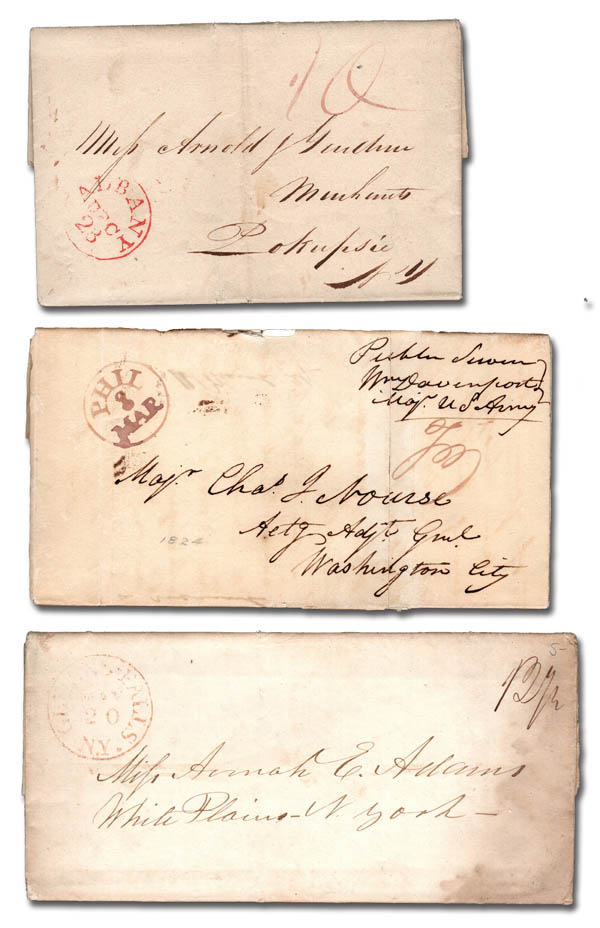 10
Miss Arnold &
Merchants
Pokepsie
NY
ALBANY
DEC
23
PHIL
8
MAR
Public Service
Wm Davenport
Maj. US Army
Majr. Chas. J. Nourse
Actg Adjt. Genl.
Washington City
1824
FALLS. NY.
20
5
12½
Miss Annah E. Adams
White Plains - N. York -